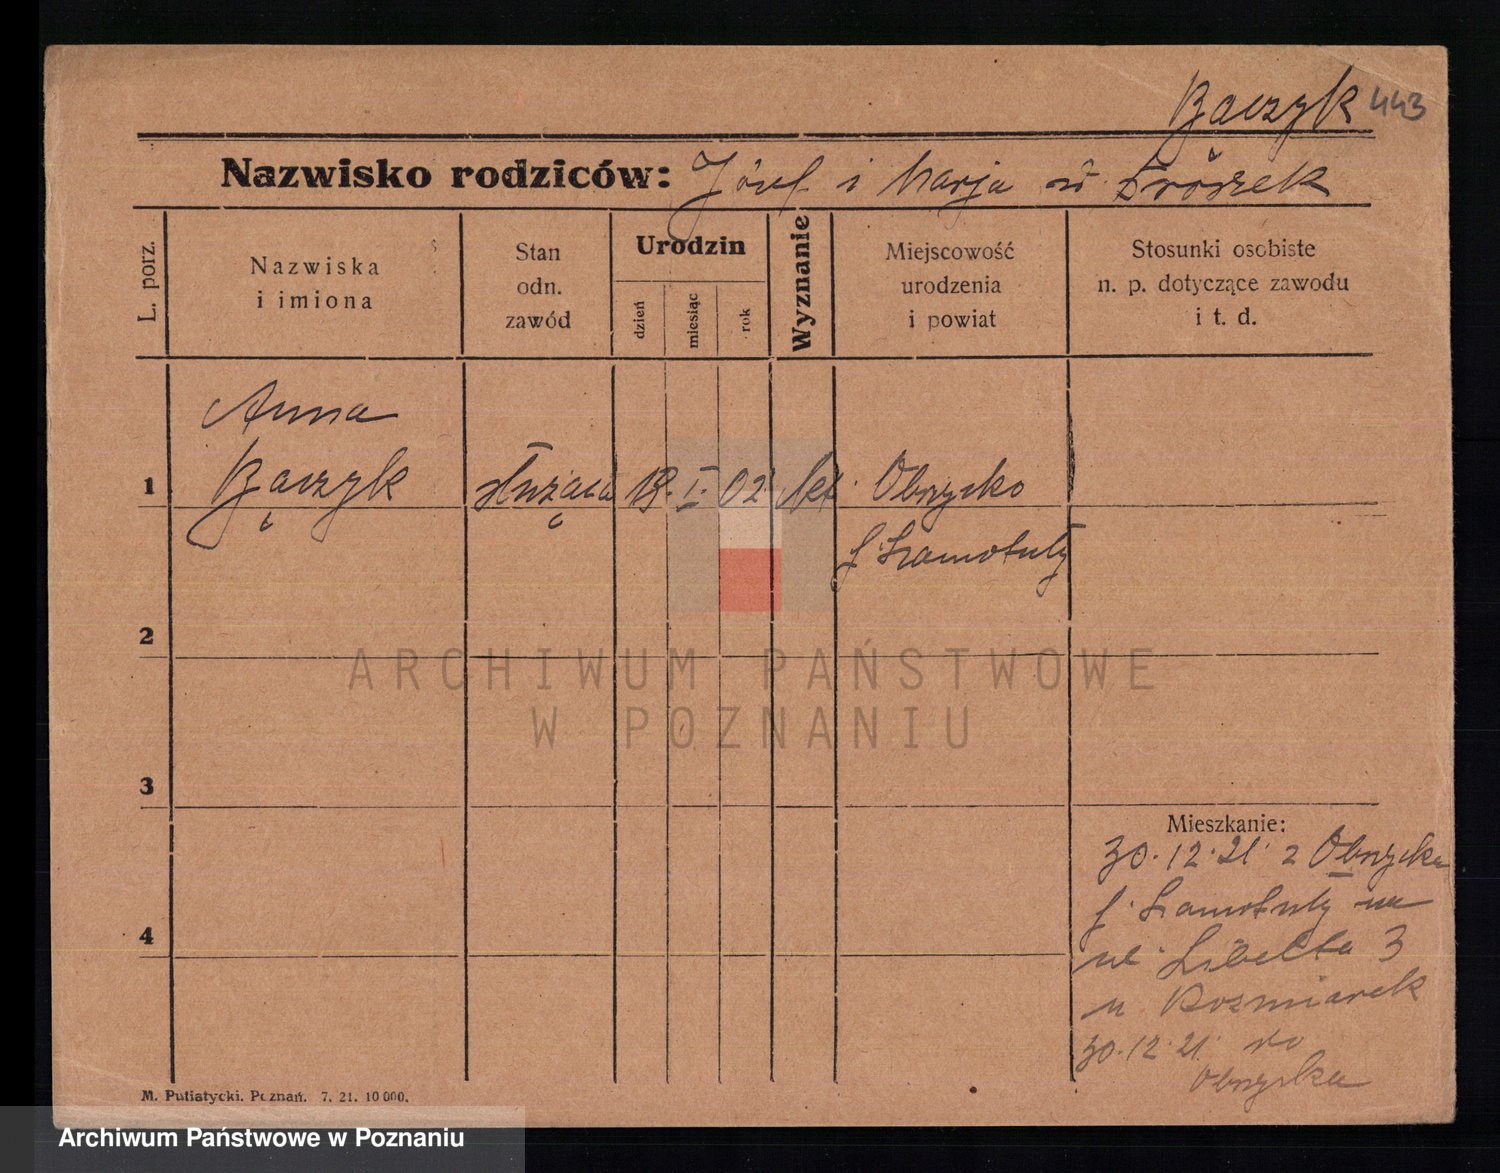 Bączyk 443
Nazwisko rodziców: Józef i Marja
L. porz.
Nazwiska
i imiona
Stan
odn.
zawód
Urodzin
dzień
miesiąc
rok
Wyznanie
Miejscowość
urodzenia
i powiat
Stosunki osobiste
n. p. dotyczące zawodu
i t. d.
Anna
1 Bączyk służąca I. 02 kat. Obrzycko
p. Szamotuły
2
ARCHIWUM PAŃSTWOWE
W POZNANIU
3
Mieszkanie:
30.12.21. z Obrzycka
p. Szamotuły na
4
ul. Libelta 3
u Kozmiarek
30.12.21. do
Obrzycka
M. Putiatycki. Poznań. 7. 21. 10 000.
Archiwum Państwowe w Poznaniu